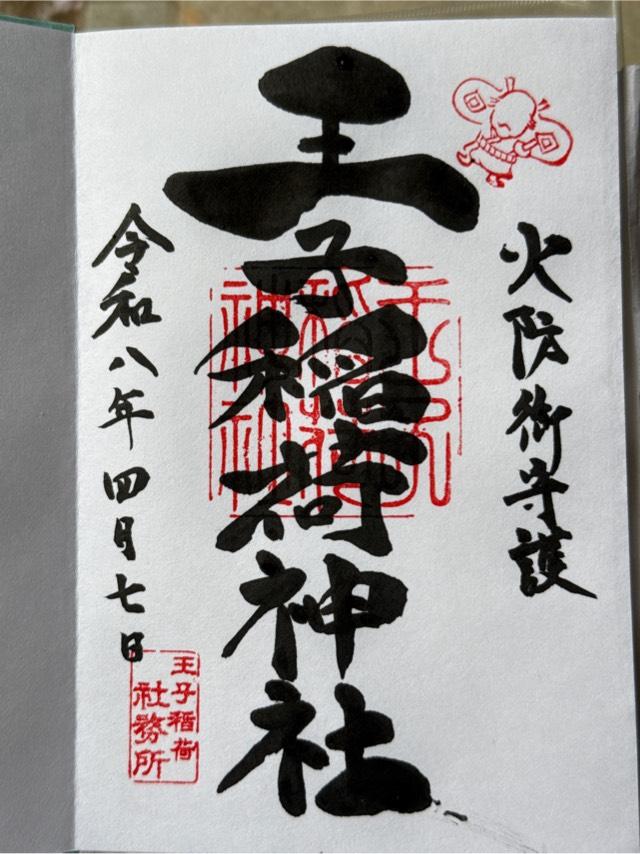 火防御守護
王子稲荷神社
令和八年四月七日
王子稲荷
社務所